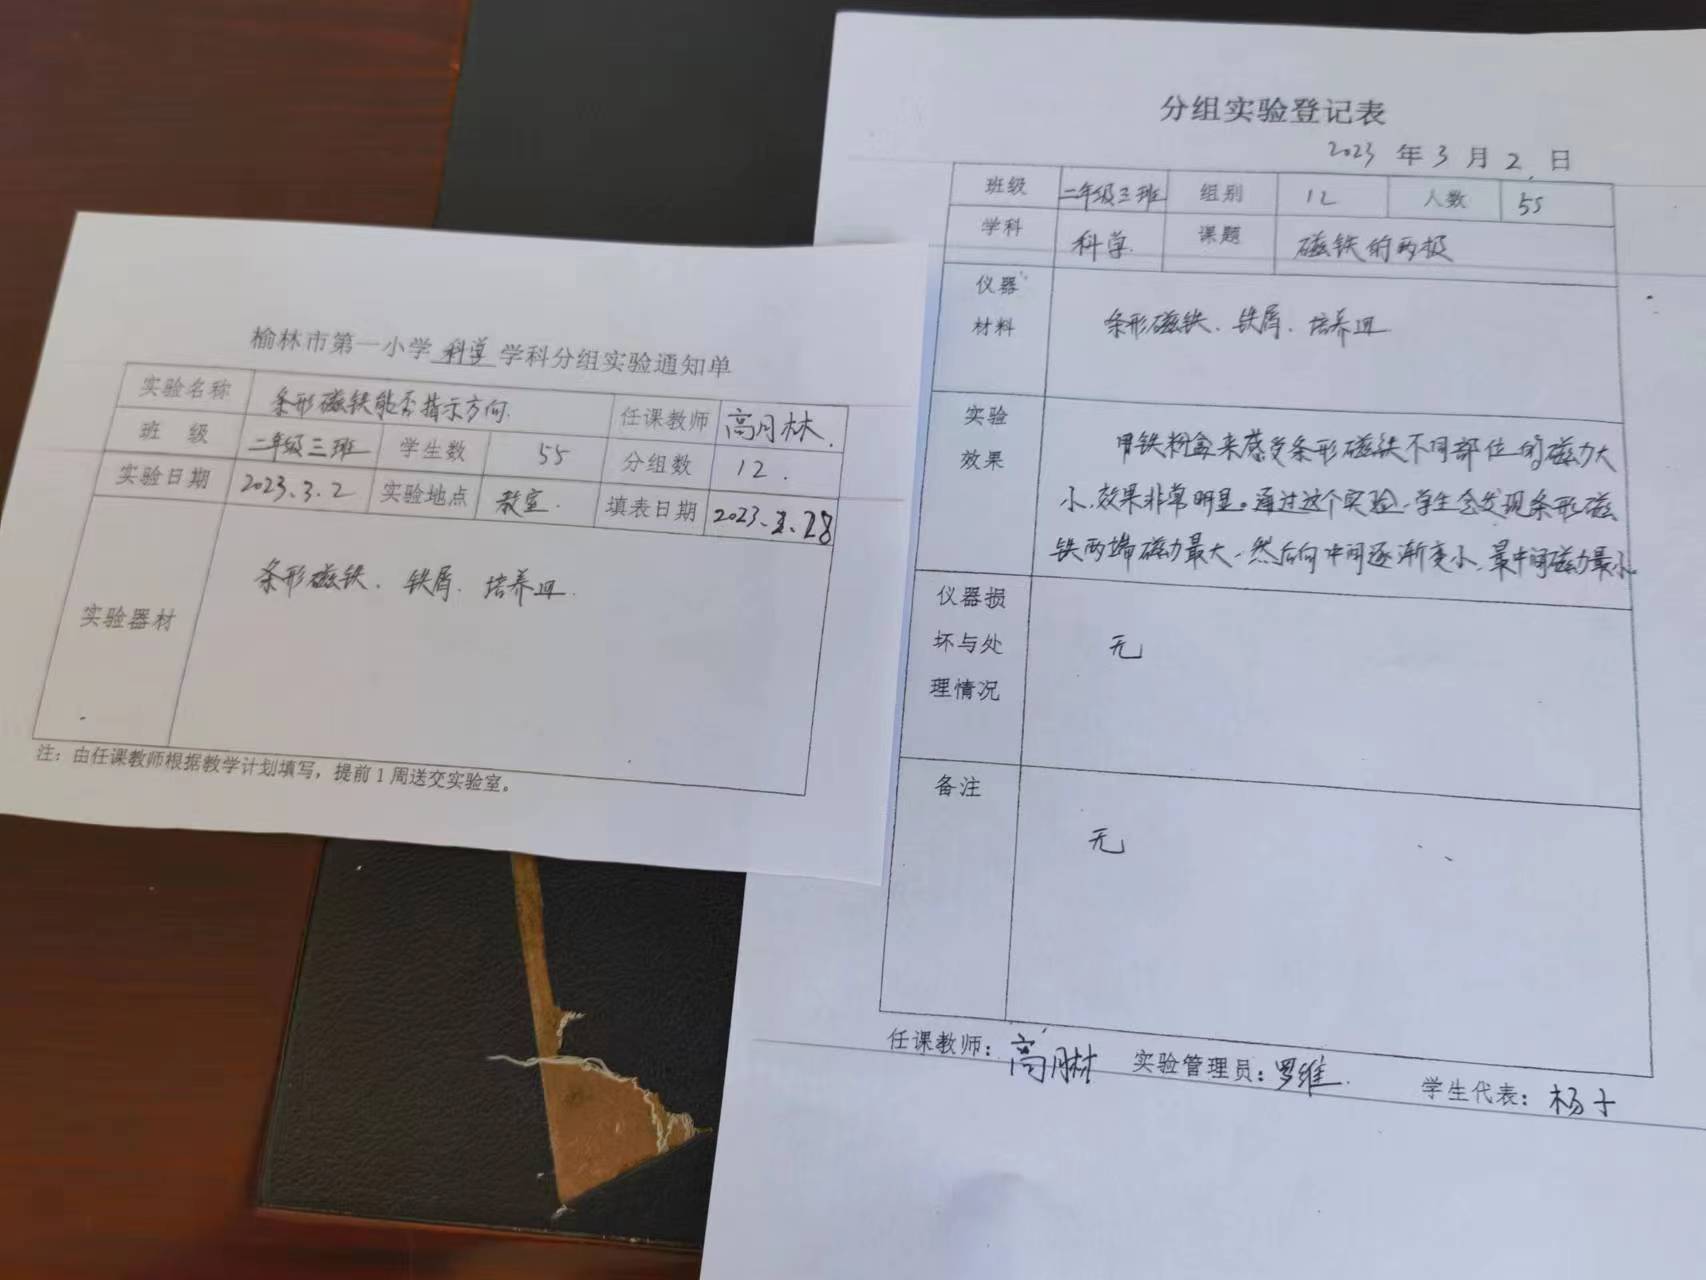 榆林市第一小学 科学 学科分组实验通知单
实验名称 条形磁铁能否指示方向. 任课教师 高月林.
班 级 二年级三班 学生数 55 分组数 12.
实验日期 2023.3.2 实验地点 教室. 填表日期 2023.2.28
实验器材 条形磁铁、铁屑、培养皿.
注：由任课教师根据教学计划填写，提前1周送交实验室。
分组实验登记表
2023 年 3 月 2 日
班级 二年级三班 组别 12 人数 55
学科 科学. 课题 磁铁的两极
仪器
材料
条形磁铁、铁屑、培养皿
实验
效果
用铁粉盒来感受条形磁铁不同部位的磁力大
小,效果非常明显。通过这个实验,学生会发现条形磁
铁两端磁力最大,然后向中间逐渐变小,最中间磁力最小.
仪器损
坏与处
理情况
无
备注
无
任课教师：高月林 实验管理员：罗维. 学生代表：杨子